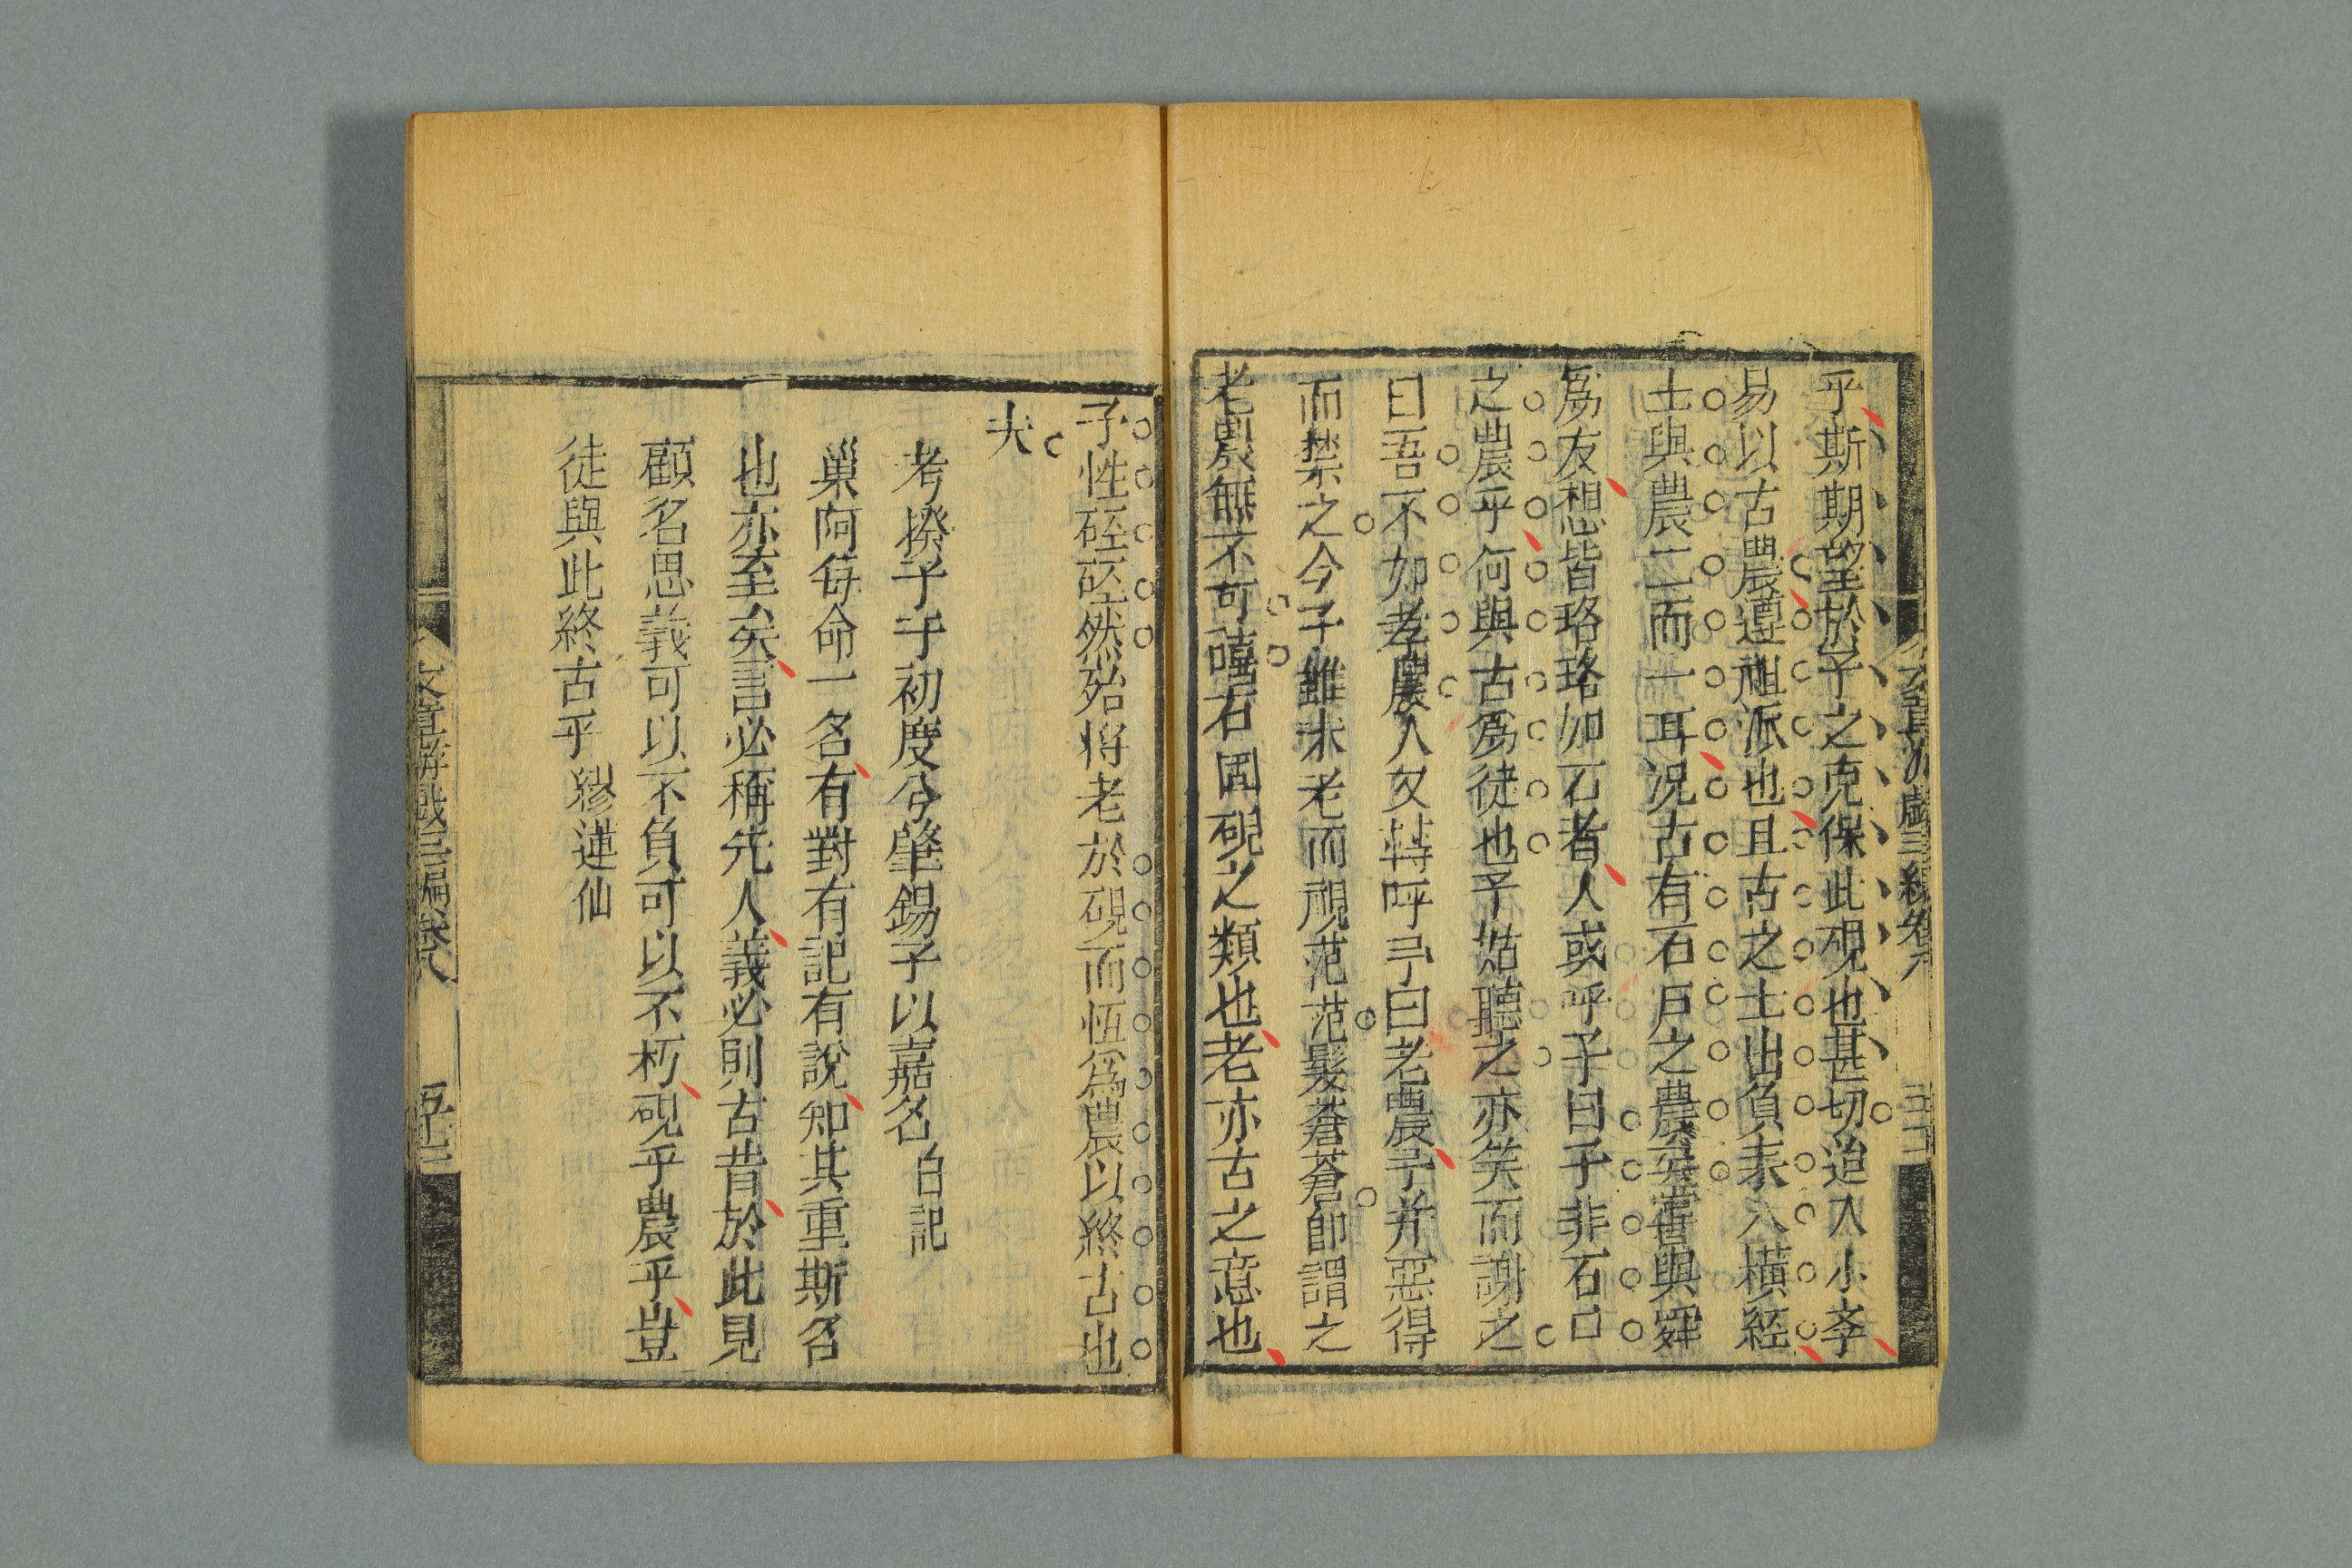 乎斯期望於子之克保此硯也甚切迨入小孝
易以古農遵祖派也且古之士出負耒入橫經
士與農二而一耳况古有石戶之農英嘗與舜
爲友想皆珞珞如石者人或呼子曰子非石戶
之農乎何與古爲徒也予姑聽之亦笑而謝之
曰吾不如老農人又苛呼予曰老農予并惡得
而禁之今子雖未老而視茫茫髮蒼蒼即謂之
老農無不可譆石固硯之類也老亦古之意也
子性硜硜然殆将老於硯而恆爲農以終古也
夫
考揆予于初度兮肇錫予以嘉名 自記
巢阿每命一名有對有記有說知其重斯名
也亦至矣言必稱先人義必則古昔於此見
顧名思義可以不負可以不朽硯乎農乎豈
徒與此終古乎 繆蓮仙
文章游戲三編卷八